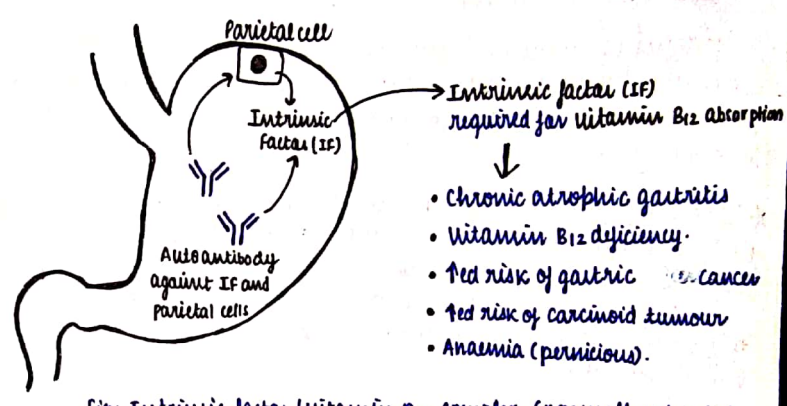 Parietal cell
Intrinsic
Factor (IF)
Autoantibody
against IF and
parietal cells
Intrinsic factor (IF)
required for vitamin B12 absorption
• Chronic atrophic gastritis
• Vitamin B12 deficiency.
• ↑ed risk of gastric cancer
• ↑ed risk of carcinoid tumour
• Anaemia (pernicious).
Intrinsic factor